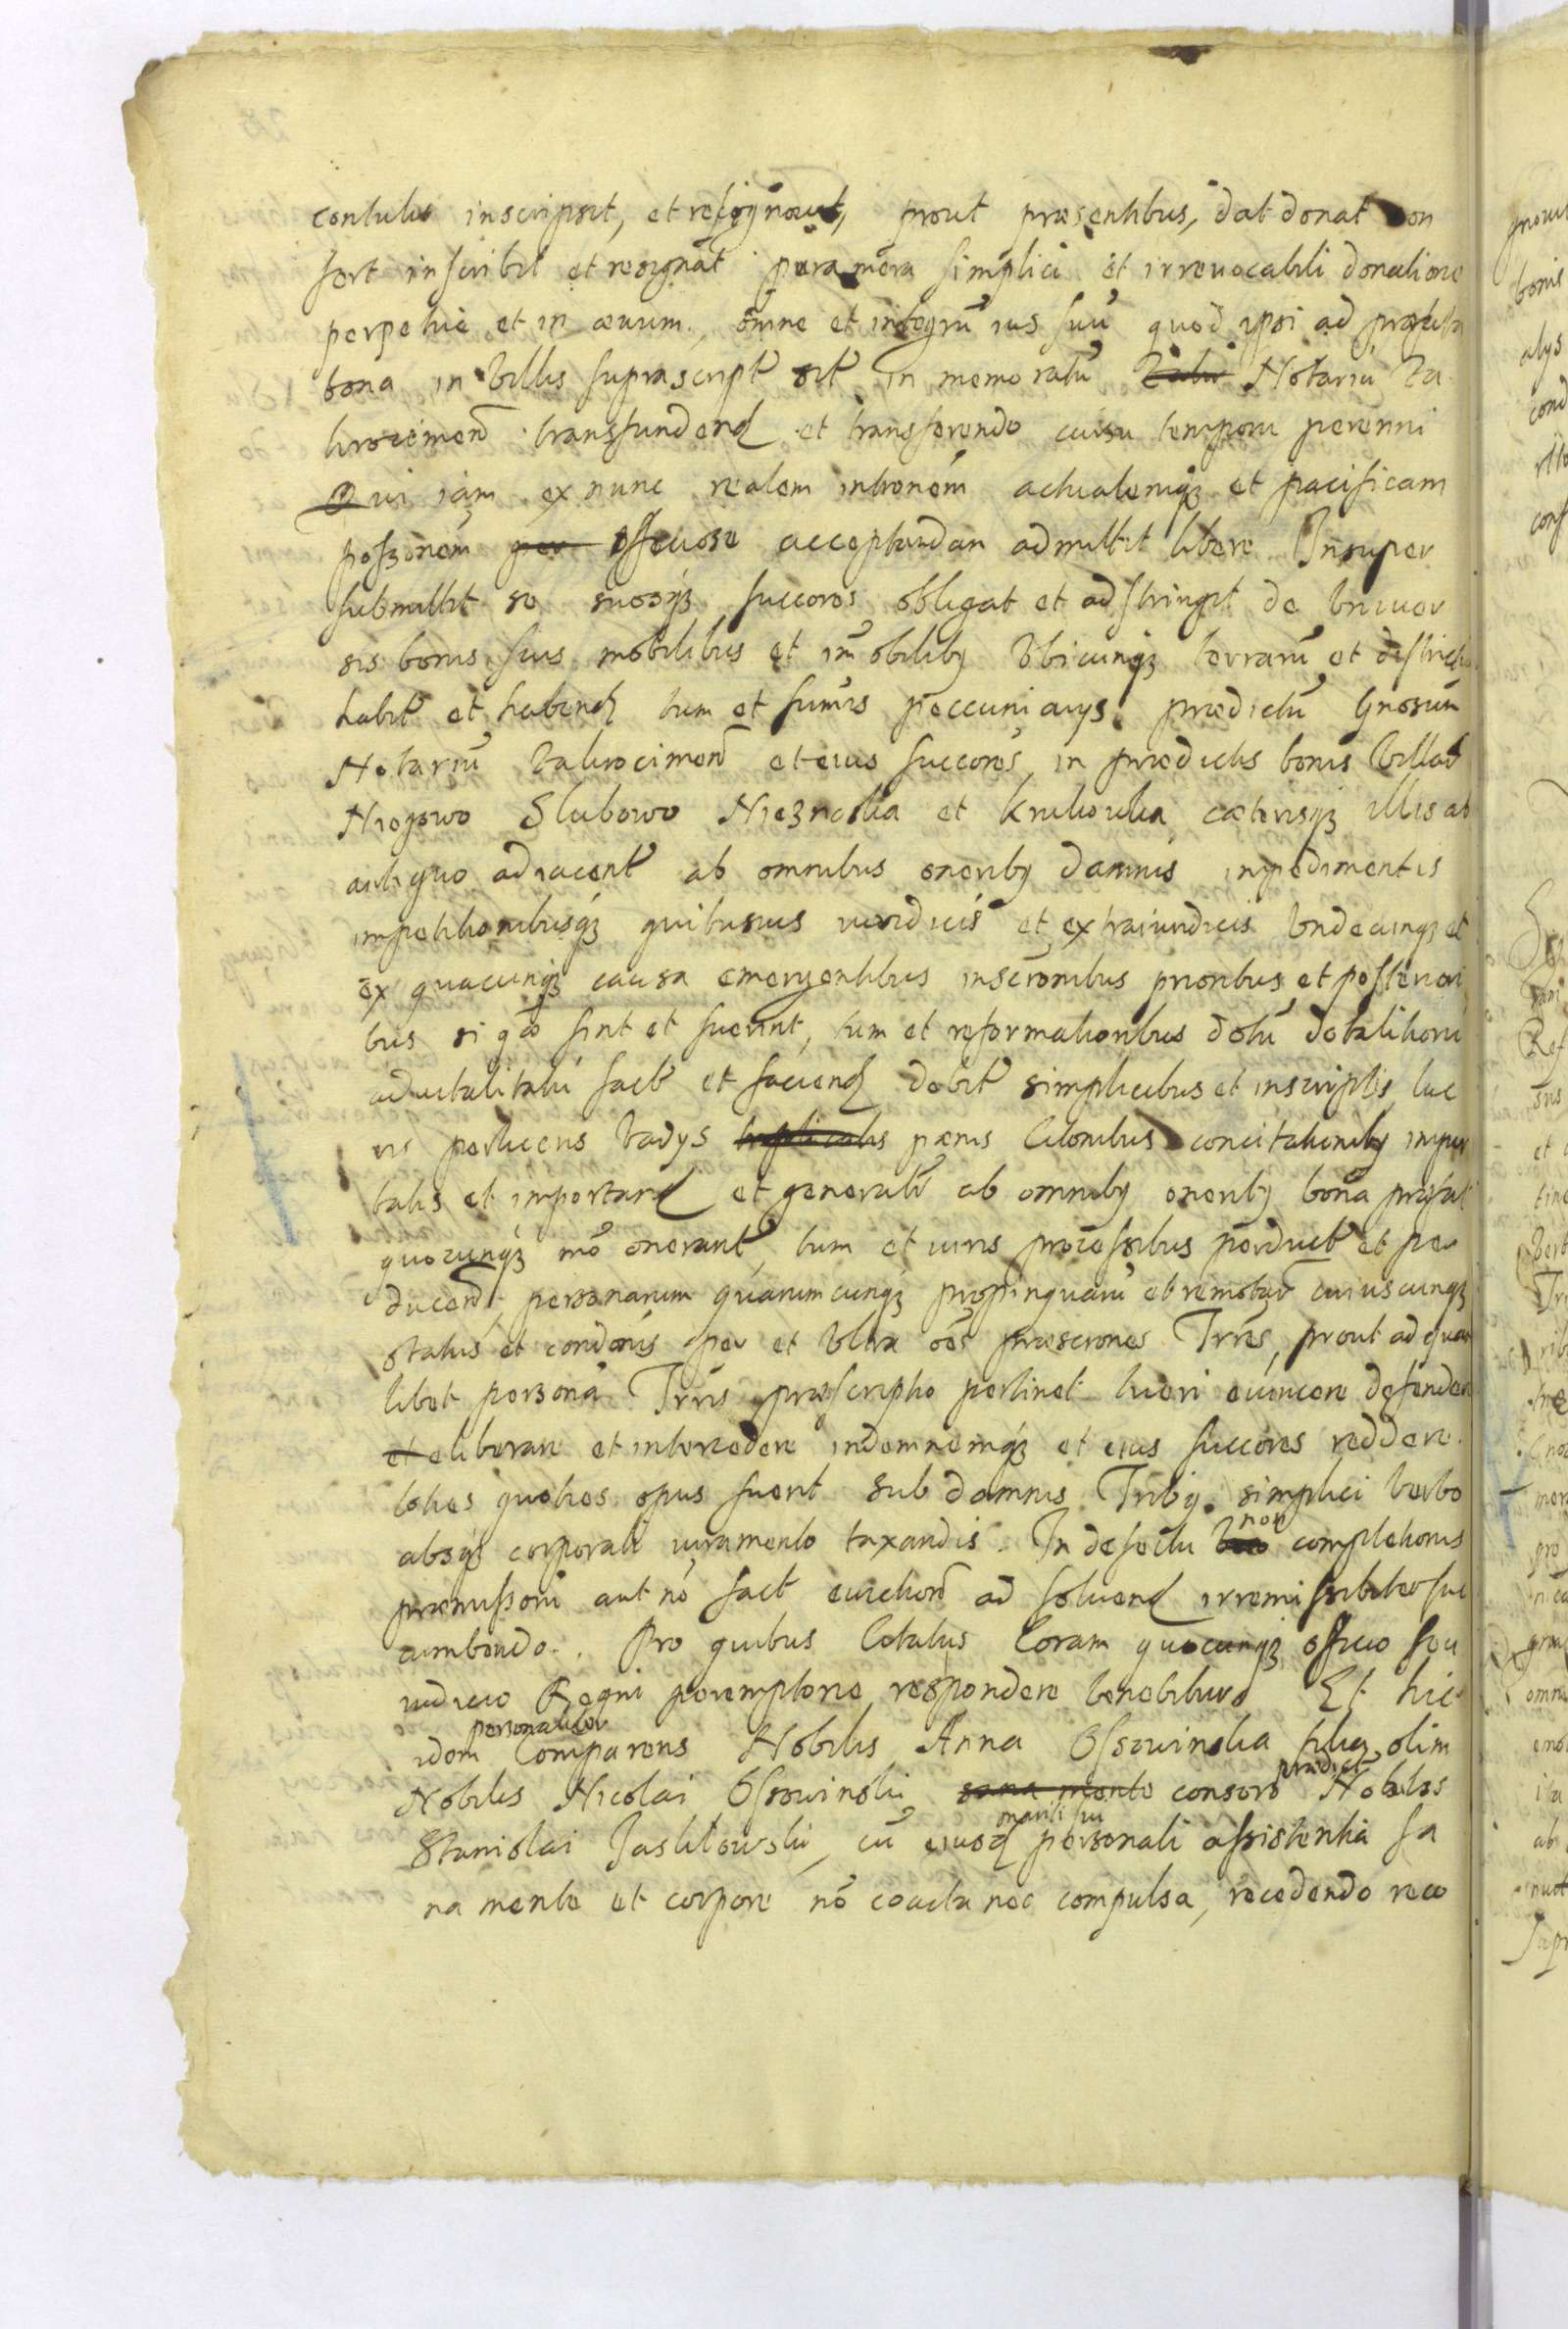 contulit inscripsit, et resignavit, prout præsentibus, dat donat con
fert inscribit et resignat pura mera simplici et irrevocabili donatione
perpetue et in ævum. omne et integrũ ius suũ quod ipsi ad præfata
bona in villis suprascript sit in memoratũ Notariũ Za
kroczimen transfundend et transferendo cursu tempore perenni
Qui iam ex nunc realem intronem actualemqз et pacificam
possonem acceptandan admittit libere Insuper
submittit se suosqз succores obligat et adstringit de univer
sis bonis suis mobilibus et imobilibq Ubicunqз terrarũ et district
habit et habend tum et sumis peccuniarys prædictũ Gnosum
Notariũ Zakrocimen et eius succores in prædictis bonis Villar
Niegowo Slubowo et cæterisqз illis ab
antiquo adiacent ab omnibus oneribq damnis inpedimentis
impetitionibusqз quibusvis iuridicis et extraiurdicis Undecunqз et
ex quacunqз causa emergentibus inscronibus prioribus et posteriori
bus si q̃ sint et fuerint, tum et reformationibus dotũ dotalitiorũ
advitalitatũ fact et faciend debit simplicibus et inscriptis luc
ris perlucris vadys pænis Citonibus concitationibq impor
tatis et importand et generalr ab omnibq oneribq bona præfat
quocunqз mõ onerant, tum et iuris processibus perduct et per
ducend, personarum quarumcunqз propinquarũ et remotar cuiuscunqз
status et condonis per et Ultra oẽs præscrones Trres, prout ad quam
libet personã Trris præscriptio pertinet tueri evincere defendere
et eliberare et intercedere indemnemqз et eius succores reddere
toties quoties opus fuerit sub damnis Trribq. simplici verbo
absqз corporali iuramento taxandis. In defectu non completionis
præmissorũ aut nõ fact eviction ad solvend irremissibiliter suc
cumbendo. Pro quibus Citatus Coram quocunqз officio seu
iudicio Regni peremptorie respondere tenebitur Et hic
idem personaliter Comparens Nobilis Anna Ossowinska filia olim
Nobilis Nicolai Ossowinski sana mente consors prædict Nobilis
Stanislai Jaslikowski, cũ eiusd mariti sui personali assistentia sa
na mente et corpore nõ coacta nec compulsa, recedendo rece